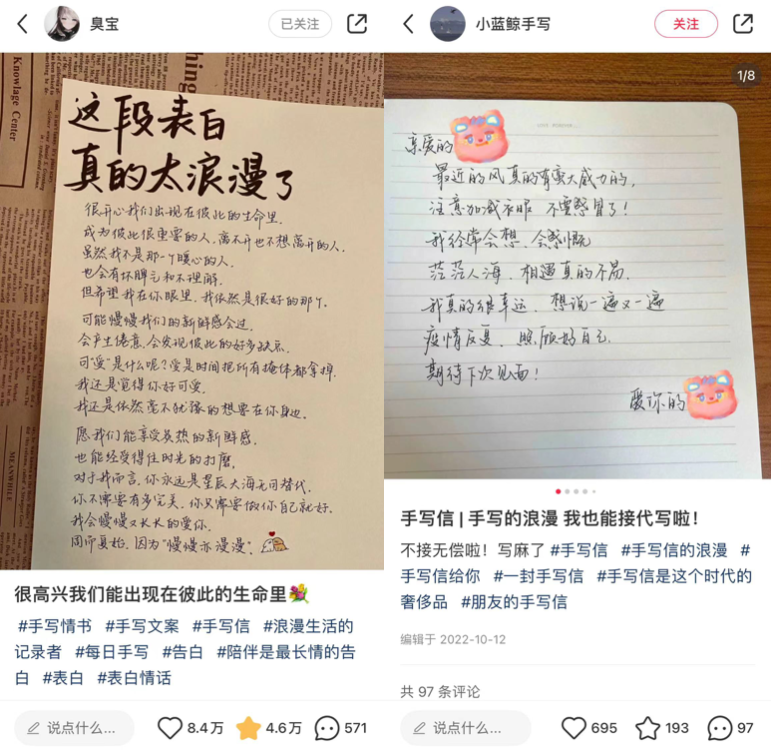 臭宝
已关注
Knowlage Center
MEANWHILE
这段表白
真的太浪漫了
很开心我们出现在彼此的生命里.
成为彼此很重要的人,离不开也不想离开的人.
虽然我不是那一个暖心的人.
也会有坏脾气和不理解.
但希望我在你眼里,我依然是很好的那个.
可能慢慢我们的新鲜感会过.
会产生倦意,会发现彼此的好多缺点.
可“爱”是什么呢?爱是时间把所有掩体都拿掉.
我还是觉得你好可爱.
我还是依然毫不犹豫的想要在你身边.
愿我们能享受炙热的新鲜感.
也能经受得住时光的打磨.
对于我而言,你永远是星辰大海无可替代.
你不需要有多完美,你只需要做你自己就好.
我会慢慢又长长的爱你.
周而复始,因为“慢慢亦漫漫”.
很高兴我们能出现在彼此的生命里💐
#手写情书 #手写文案 #手写信 #浪漫生活的
记录者 #每日手写 #告白 #陪伴是最长情的告
白 #表白 #表白情话
说点什么...
8.4万
4.6万
571
小蓝鲸手写
关注
1/8
亲爱的
最近的风真的有蛮大威力的,
注意加减衣服 不要感冒了!
我经常会想,会感慨
茫茫人海,相遇真的不易
我真的很幸运,想说一遍又一遍
疫情反复,照顾好自己.
期待下次见面!
爱你的
手写信 | 手写的浪漫 我也能接代写啦!
不接无偿啦!写麻了 #手写信 #手写信的浪漫 #
手写信给你 #一封手写信 #手写信是这个时代的
奢侈品 #朋友的手写信
编辑于 2022-10-12
共 97 条评论
说点什么...
695
193
97